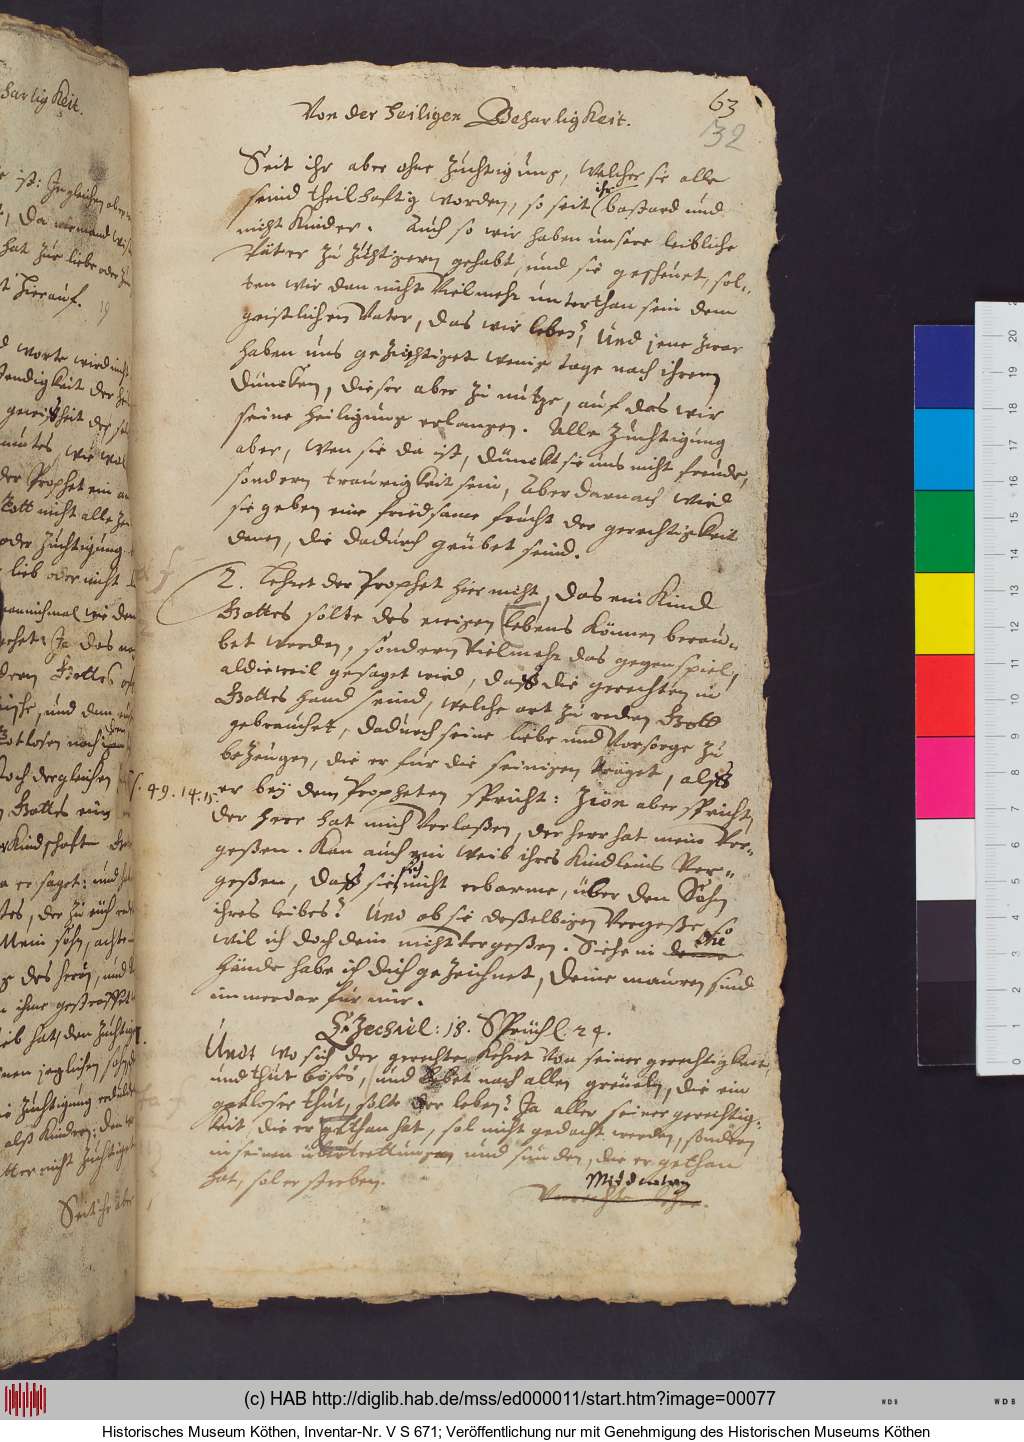 harligkeit.
63
132
Von der heiligen Beharligkeit.
Seit ihr aber ohne züchtigung, welcher sie alle
seind theilhaftig worden, so seit ihr bastard und
nicht kinder. Auch so wir haben unsere leibliche
Väter zu züchtigern gehabt, und sie gescheuet, sol-
ten wir dan nicht Vielmehr unterthan sein dem
geistlichen Vater, das wir leben? Und jene zwar
haben uns gezüchtiget wenig tage nach ihrem
düncken, dieser aber zu nutze, auf das wir
seine heiligung erlangen. Alle züchtigung
aber, wen sie da ist, dünckt sie uns nicht freude,
sondern traurigkeit sein, Aber darnach wird
sie geben eine friedsame frucht der gerechtigkeit
denen, die dadurch geübet seind.
2. Lehret der Prophet hier nicht, das ein Kind
Gottes solte des ewigen lebens können berau-
bet werden, sondern Vielmehr das gegenspiel,
aldieweil gesaget wird, daß die gerechten in
Gottes hand seind, welche art zu reden Gott
gebrauchet, dadurch seine liebe und Vorsorge zu
bezeugen, die er für die seinigen träget, alß
49. 14. 15.
er beÿ dem Propheten spricht: Zion aber spricht,
der Herr hat mich Verlaßen, der herr hat mein Ver-
geßen. Kan auch ein Weib ihres Kindleins Ver-
geßen, daß sie sich nicht erbarme, über den Sohn
ihres leibes? Und ob sie deßelbigen Vergeße, so
wil ich doch dein nicht Vergeßen. Siehe in die
Hände habe ich dich gezeichnet, deine mauren sind
immerdar für mir.
Ezechiel: 18. Spruch l. 24.
Undt wo sich der gerechte kehret Von seiner gerechtigkeit,
und thut böses, und lebet nach allen greueln, die ein
gottloser thut, solte der leben? Ja aller seiner gerechtig-
keit, die er gethan hat, sol nicht gedacht werden, sondern
in seinen übertrettungen und sünden, die er gethan
hat, sol er sterben.
(c) HAB http://diglib.hab.de/mss/ed000011/start.htm?image=00077
Historisches Museum Köthen, Inventar-Nr. V S 671; Veröffentlichung nur mit Genehmigung des Historischen Museums Köthen